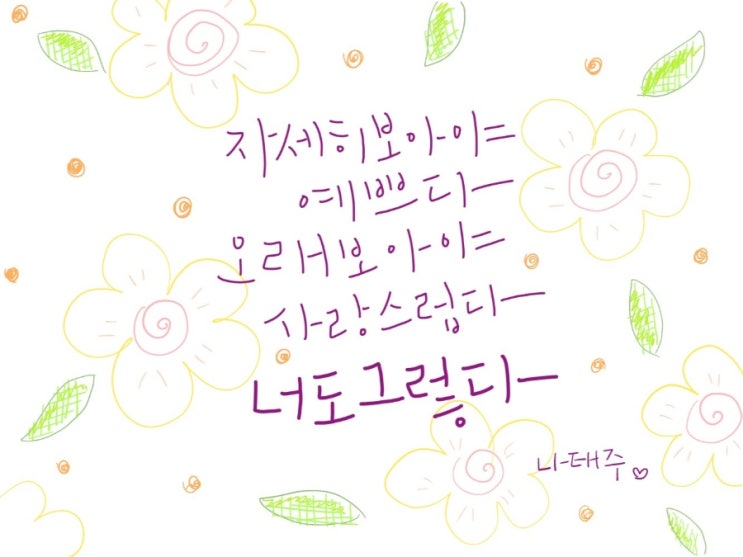 자세히보아야
예쁘다
오래보아야
사랑스럽다
너도그렇다
나태주♡